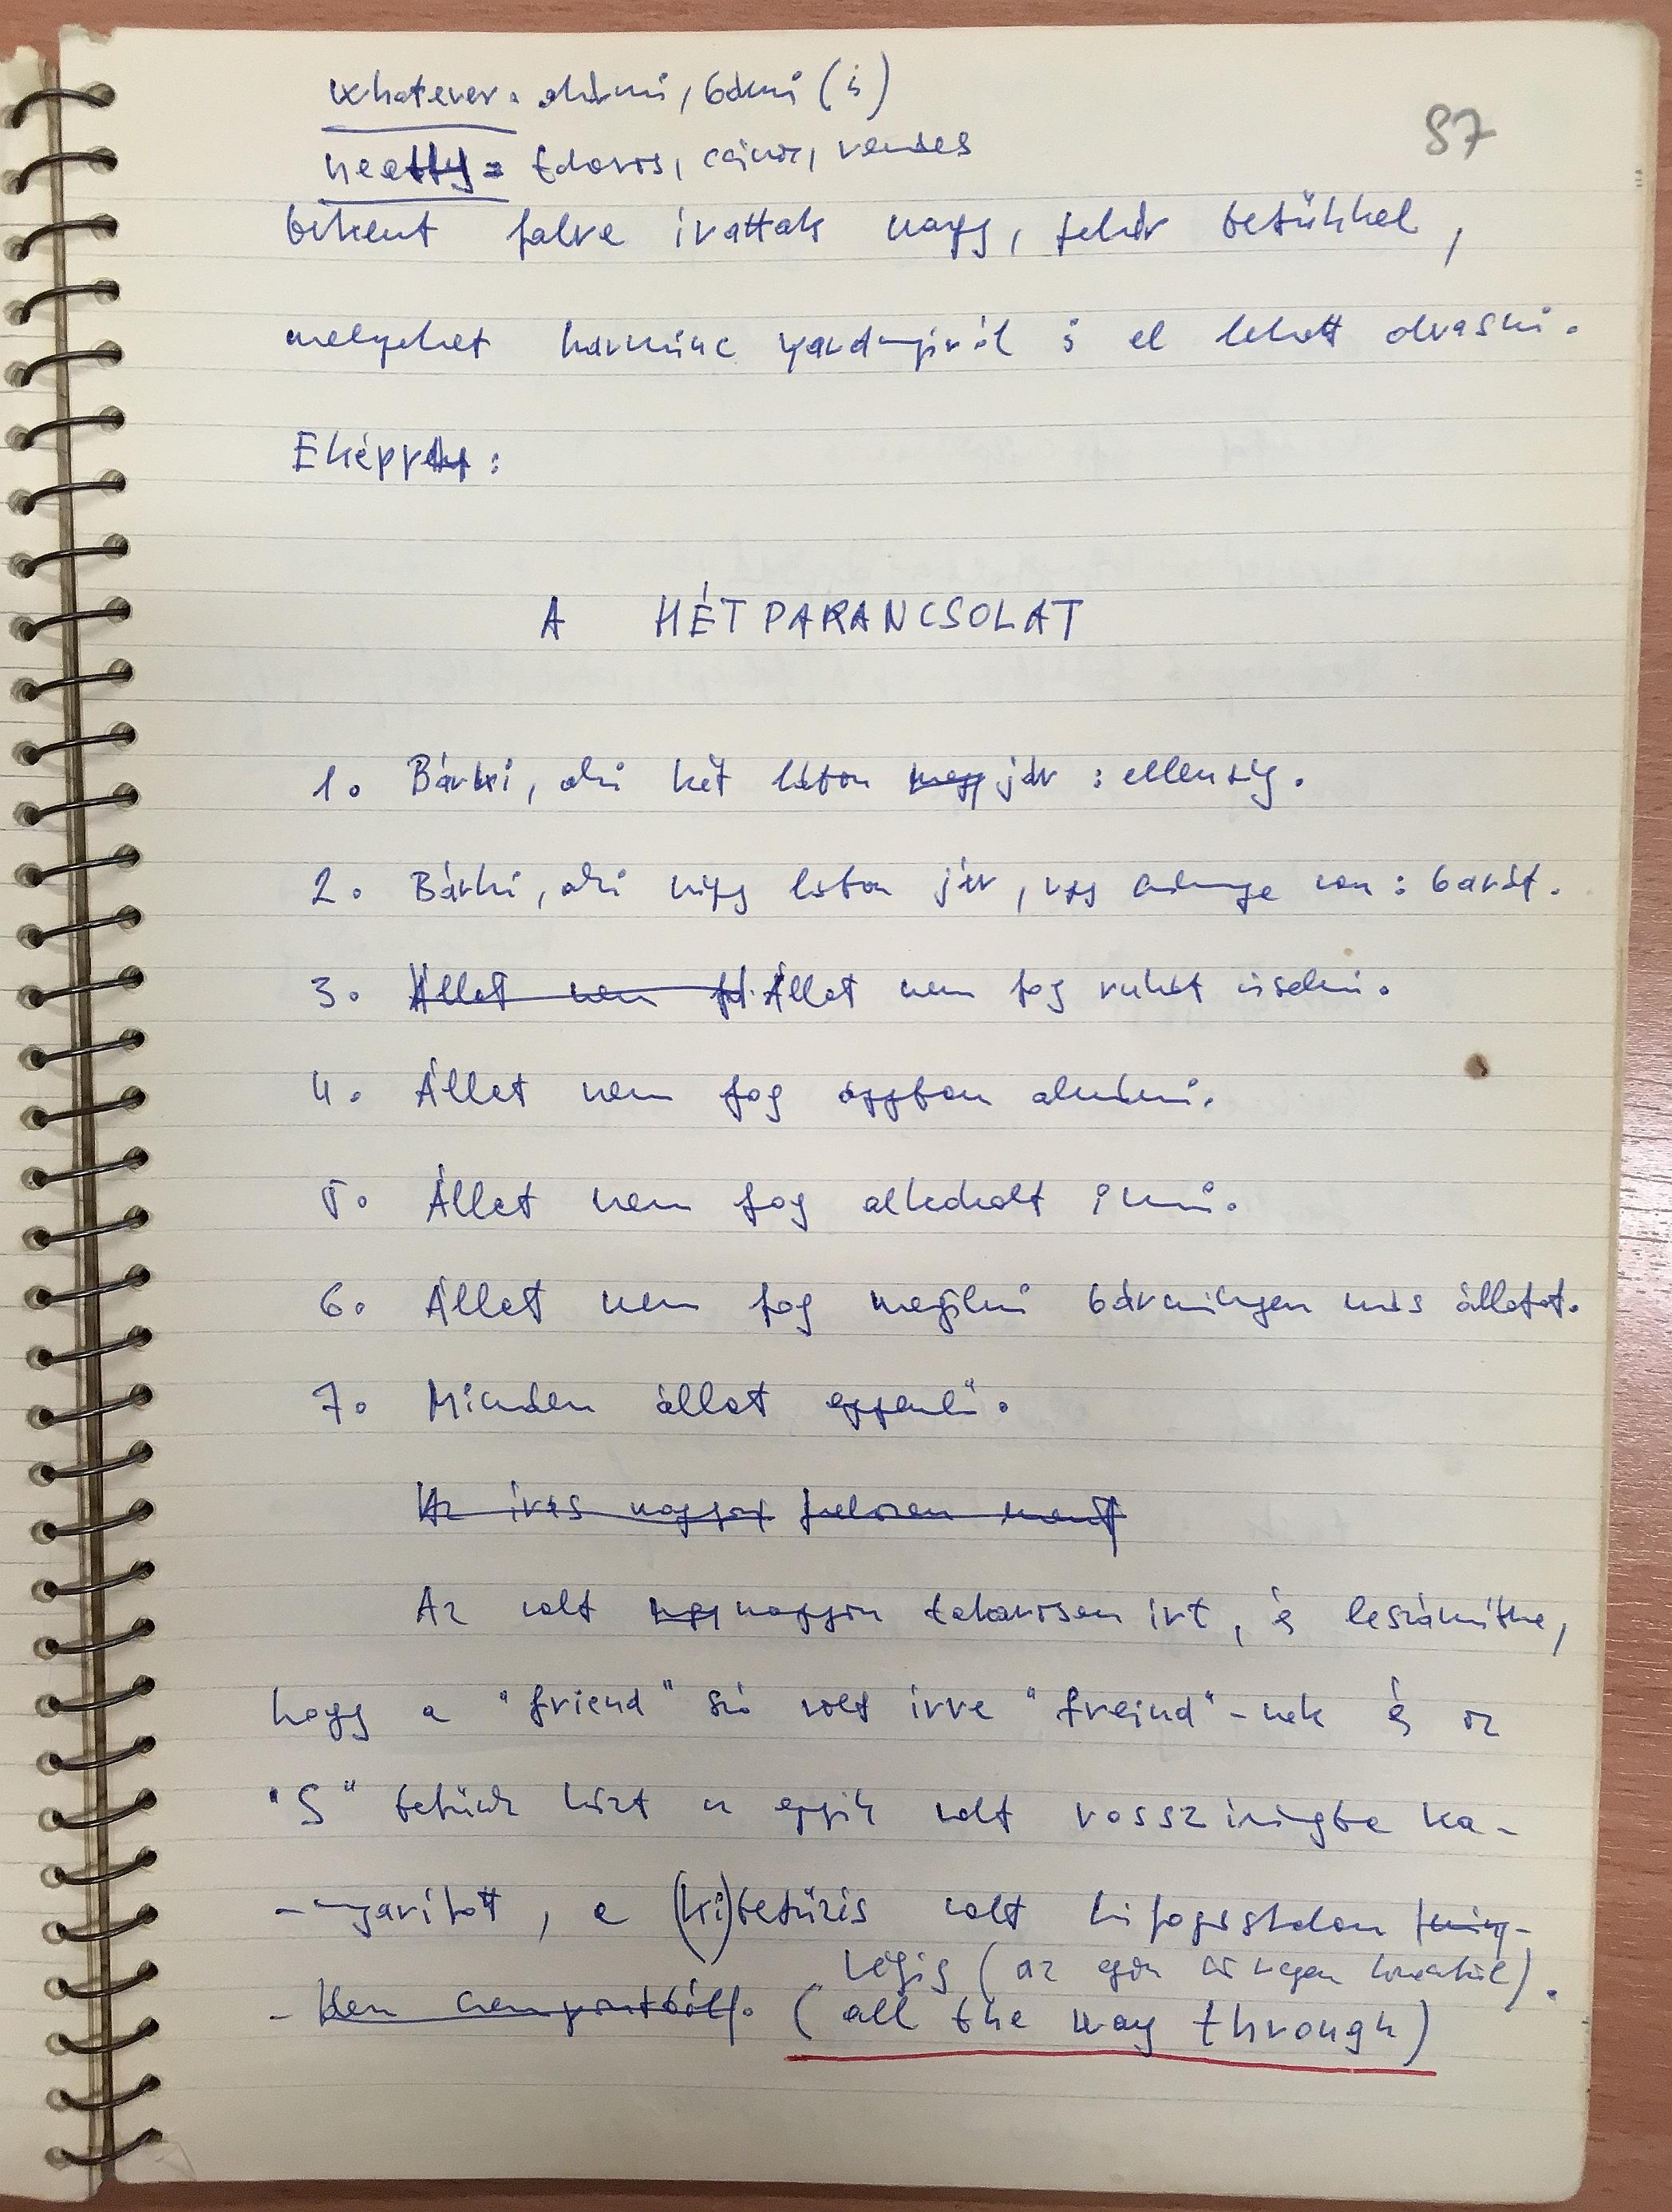 whatever = akármi, bármi (is)
neatly = takaros, csinos, rendes
87
bekent falra irattak nagy, fehér betűkkel,
melyeket harminc yardnyiról is el lehett olvasni.
Eképpen:
A HÉT PARANCSOLAT
1. Bárki, aki két lábon megy jár : ellenség.
2. Bárki, aki négy lábon jár, vagy szárnya van : barát.
3. Állat nem fo Állat nem fog ruhát viselni.
4. Állat nem fog ágyban aludni.
5. Állat nem fog alkoholt inni.
6. Állat nem fog megölni bármilyen más állatot.
7. Minden állat egyenlő.
Az irás nagyon ment
Az volt nagyon takarosan irt, és leszámítva,
hogy a "friend" szó volt irva "freind"-nek és az
"S" betűk közt az egyik volt rossz irányba ka-
-nyarított, a (ki)betűzés volt kifogástalan
végig (az egész szövegen keresztül).
(all the way through)